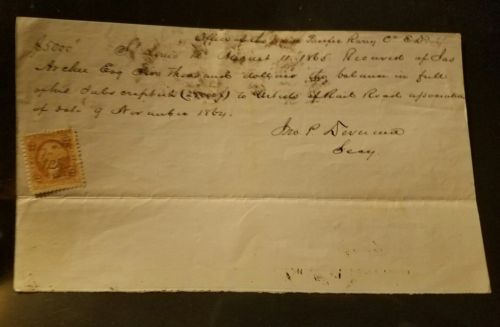 Office of the Union Pacific Rway Co E D
$5000 St Louis Mo August 11, 1865 Received of Jas
Archer Esq Five thousand dollars balance in full
of his Subscription to Articles of Rail Road association
of date 9 November 1864.
Jno. P Devereux
Secy.